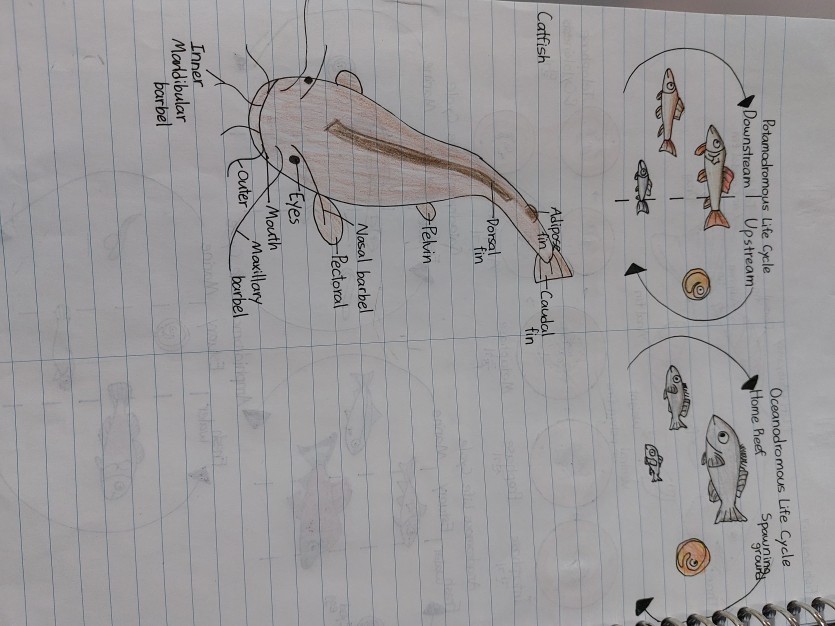 Potamodromous Life Cycle
Downstream | Upstream
Oceanodromous Life Cycle
Home Reef
Spawning
ground
Catfish
Adipose
fin
Caudal
fin
Dorsal
fin
Pelvin
Nasal barbel
Pectoral
Eyes
Mouth
Maxillary
barbel
Outer
Inner
Mandibular
barbel